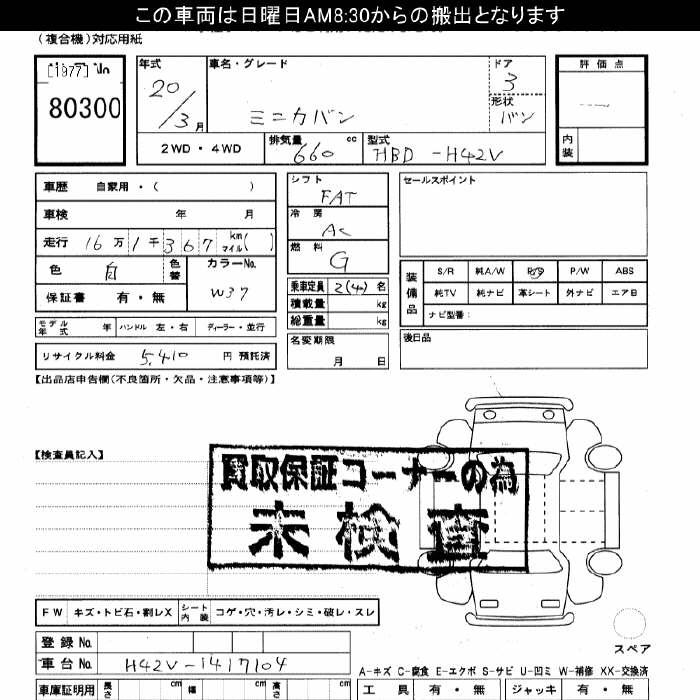 この車両は日曜日AM8:30からの搬出となります
(複合機)対応用紙
[1977]
80300
年式
20/3月
車名・グレード
ミニカバン
ドア
3
形状
バン
評価点
内装
2WD・4WD
排気量
660 cc
型式
HBD-H42V
車歴 自家用・( )
車検 年 月
走行 16万1千367 km マイル( )
色 白 色替
カラーNo.
W37
保証書 有・無
シフト
FAT
冷房
AC
燃料
G
乗車定員 2(4)名
積載量 kg
総重量 kg
セールスポイント
装備品
S/R 純A/W P/S P/W ABS
純TV 純ナビ 革シート 外ナビ エアB
ナビ型番:
モデル年式 年 ハンドル 左・右 ディーラー・並行
名変期限
月 日
後日品
リサイクル料金 5,410 円 預託済
【出品店申告欄(不良箇所・欠品・注意事項等)】
【検査員記入】
買取保証コーナーの為
未検査
FW キズ・トビ石・割レX シート内装 コゲ・穴・汚レ・シミ・破レ・スレ
スペア
登録No.
車台No. H42V-1417104
A-キズ C-腐食 E-エクボ S-サビ U-凹ミ W-補修 XX-交換済
車庫証明用 長さ cm 幅 cm 高さ cm
工具 有・無 ジャッキ 有・無